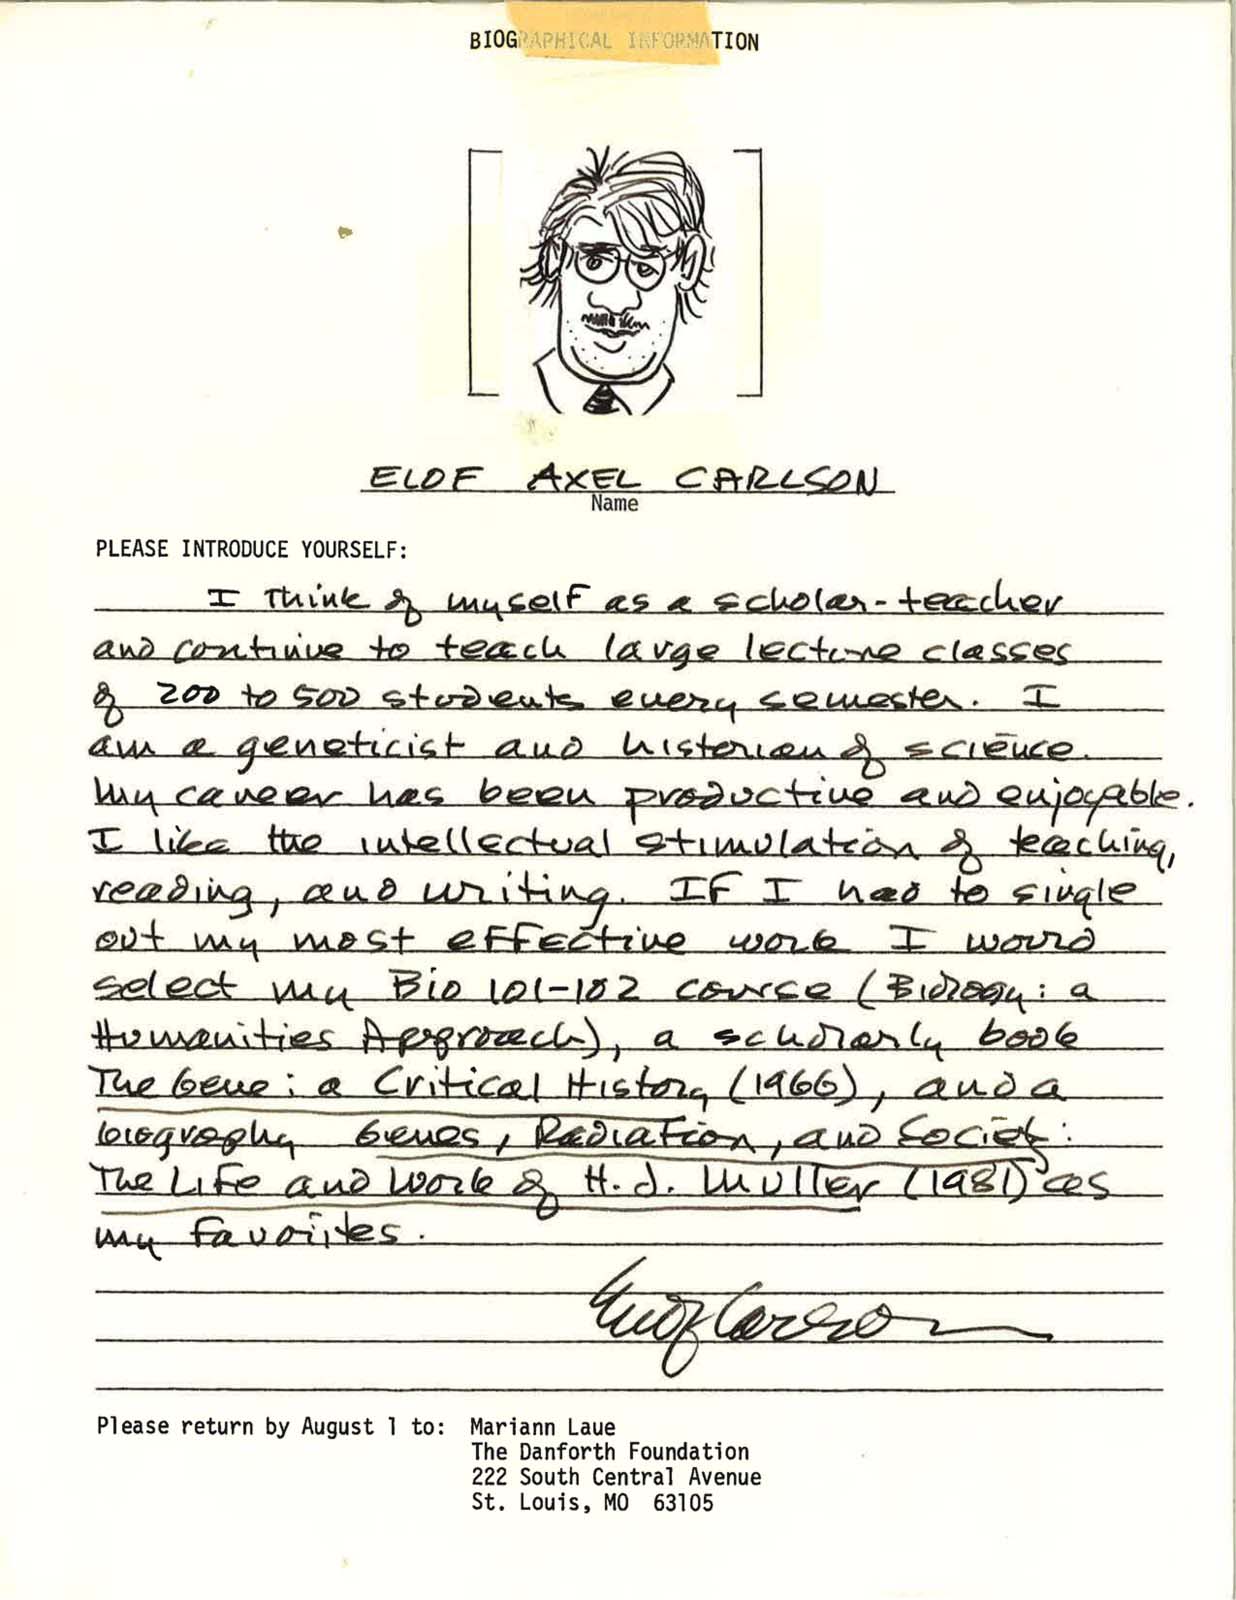 BIOGRAPHICAL INFORMATION
ELOF AXEL CARLSON
Name
PLEASE INTRODUCE YOURSELF:
I think of myself as a scholar-teacher
and continue to teach large lecture classes
of 200 to 500 students every semester. I
am a geneticist and historian of science.
My career has been productive and enjoyable.
I like the intellectual stimulation of teaching,
reading, and writing. If I had to single
out my most effective work I would
select my Bio 101-102 course (Biology: a
Humanities Approach), a scholarly book
The Gene: a Critical History (1966), and a
biography Genes, Radiation, and Society:
The Life and Work of H. J. Muller (1981) as
my favorites.
Elof Carlson
Please return by August 1 to: Mariann Laue
The Danforth Foundation
222 South Central Avenue
St. Louis, MO 63105